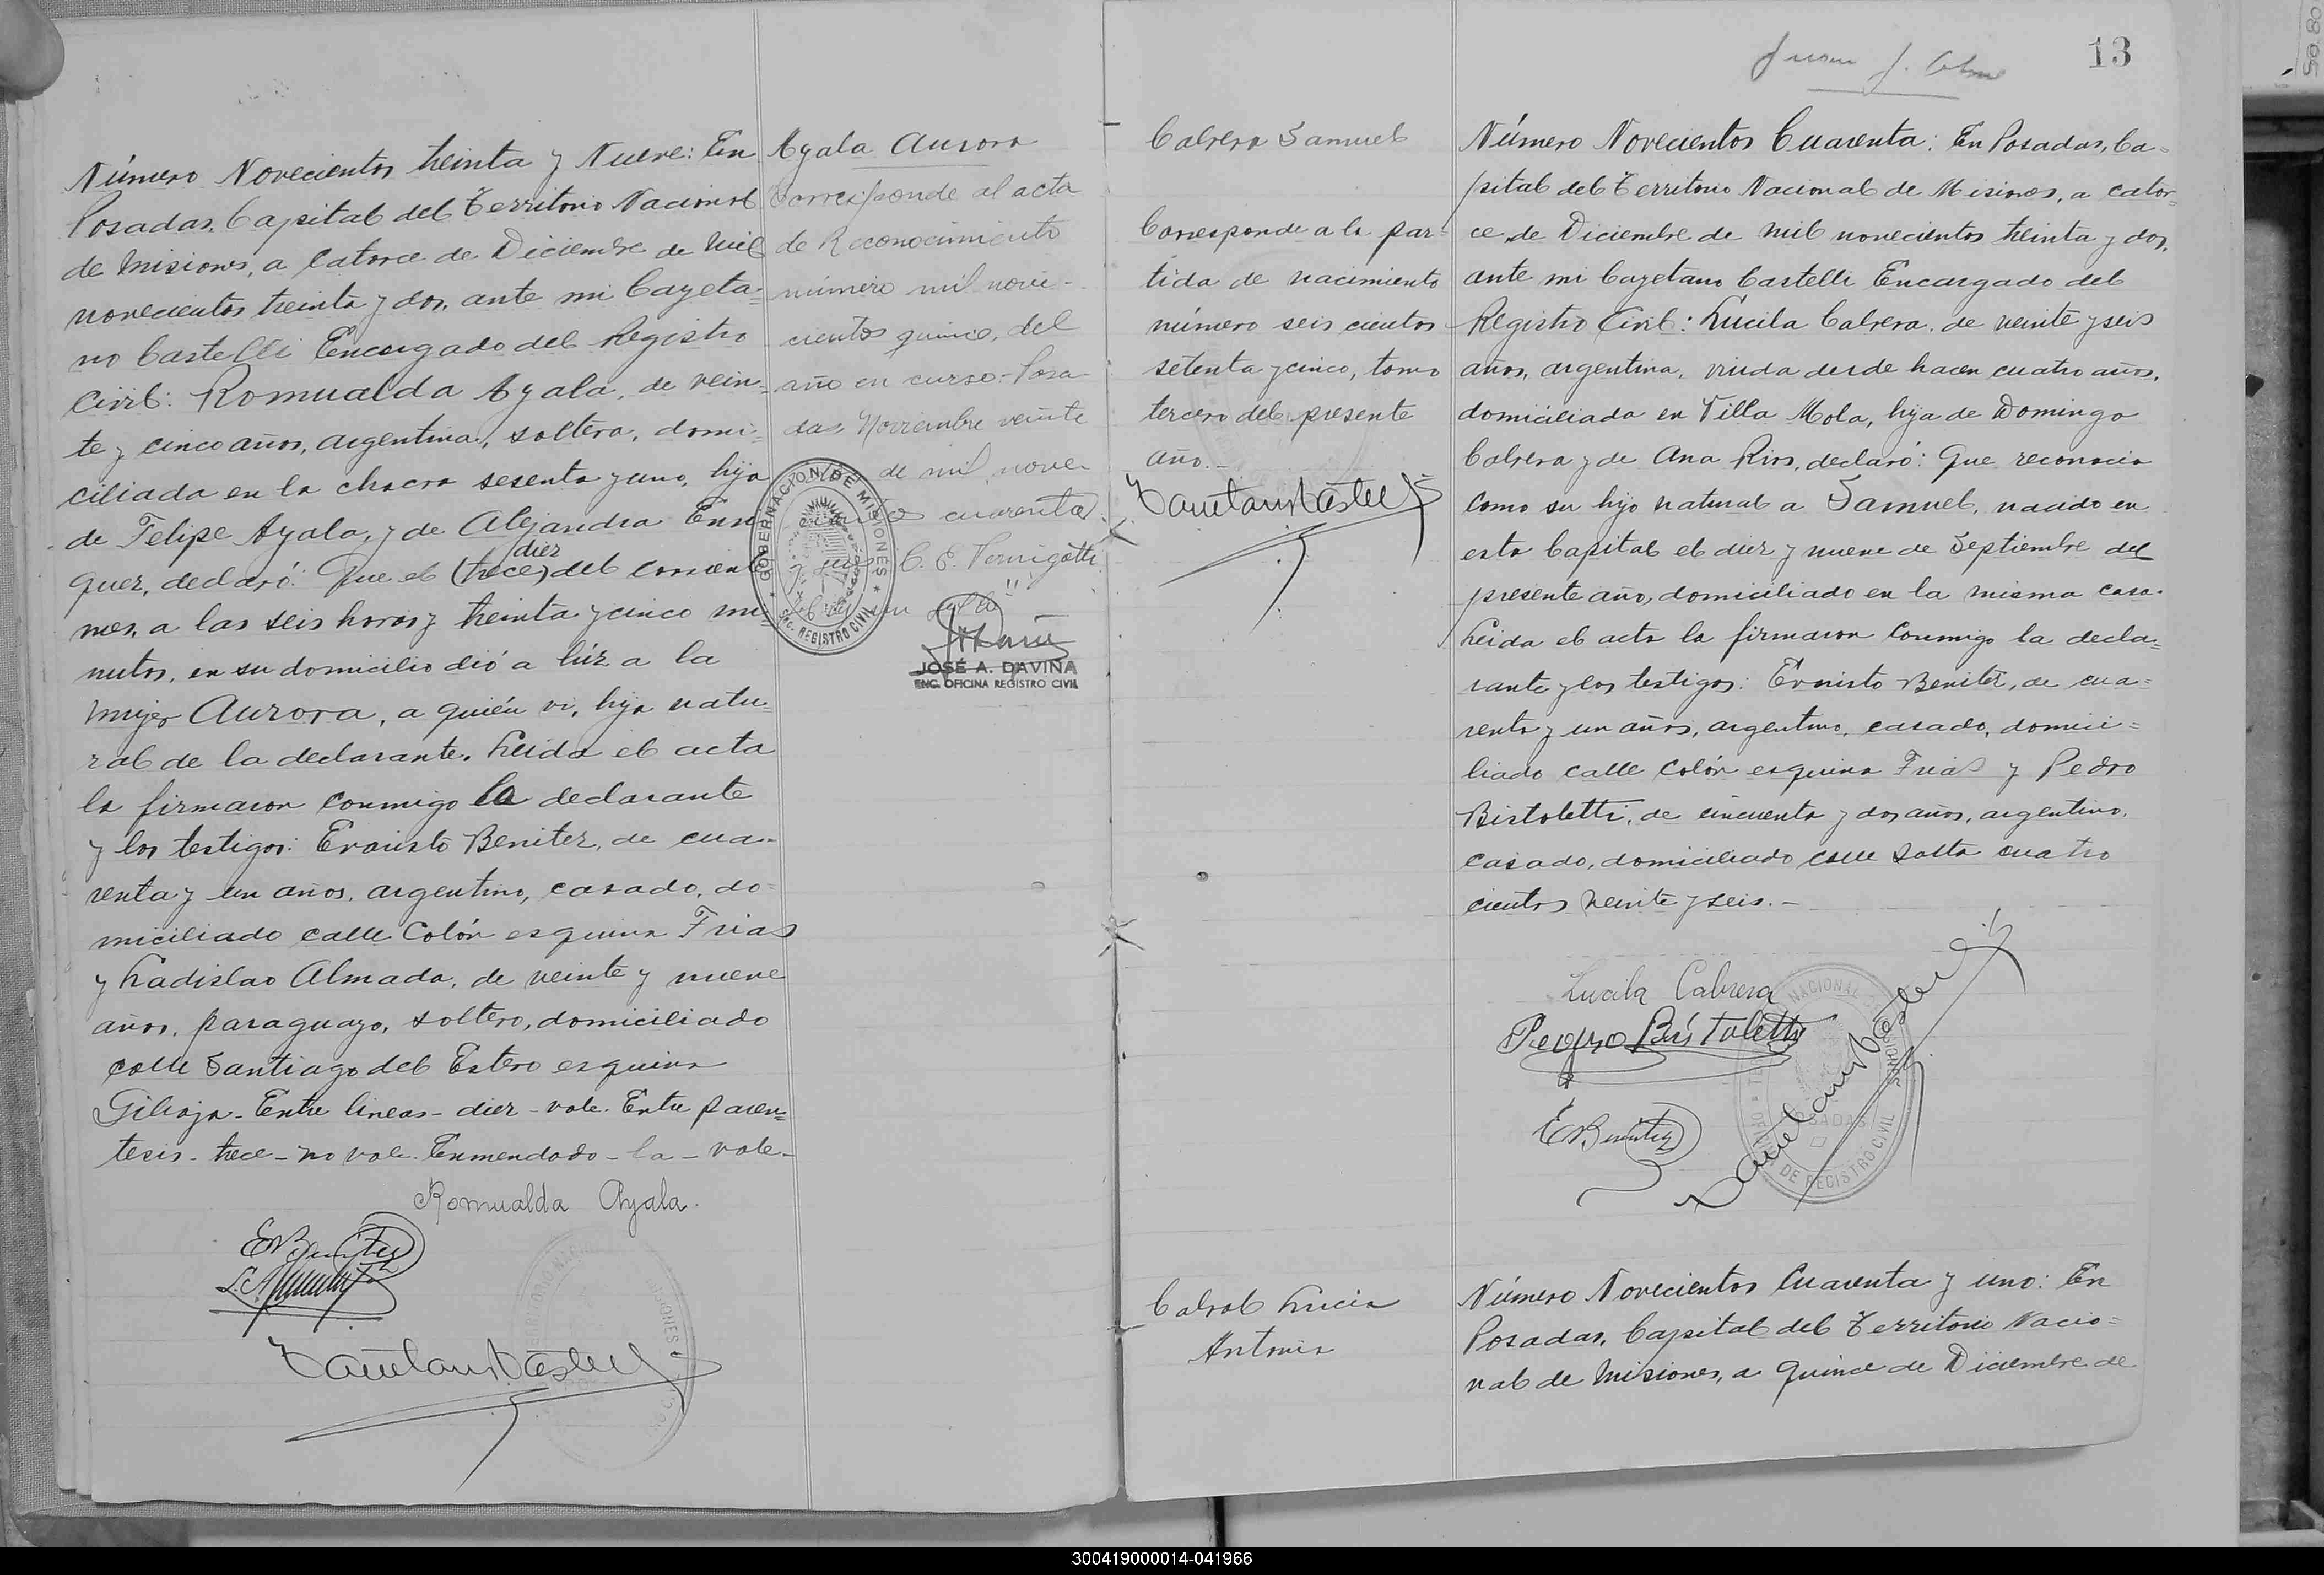 Número Novecientos treinta y Nueve: En
Posadas, Capital del Territorio Nacional
de Misiones, a catorce de Diciembre de mil
novecientos treinta y dos, ante mi Cayeta-
no Castelli Encargado del Registro
Civil: Romualda Ayala, de vein-
te y cinco años, argentina, soltera, domi-
ciliada en la chacra sesenta y uno, hija
de Felipe Ayala, y de Alejandra Enri
diez
quez, declaró: Que el (trece) del corriente
mes, a las seis horas y treinta y cinco mi-
nutos, en su domicilio dió a lúz a la
mujer Aurora, a quién vi, hija natu-
ral de la declarante. Leida el acta
la firmaron conmigo la declarante
y los testigos: Evaristo Benitez, de cua-
renta y un años, argentino, casado, do-
miciliado calle Colón esquina Frias
y Ladislao Almada, de veinte y nueve
años, paraguayo, soltero, domiciliado
calle Santiago del Estero esquina
Gibaja - Entre lineas - diez - vale. Entre paren-
tesis - trece - no vale. Enmendado - la - vale -
Romualda Ayala.
E Benitez
Ayala Aurora
Corresponde al acta
de Reconocimiento
número mil nove-
cientos quince, del
año en curso - Posa-
das Noviembre veinte
de mil nove-
cientos cuarenta
y seis C. E. Vernigotti
GOBERNACION DE MISIONES
ENC. REGISTRO CIVIL
JOSÉ A. DAVIÑA
ENC. OFICINA REGISTRO CIVIL
13
Juan J.
Cabrera Samuel
Corresponde a la par-
tida de nacimiento
número seis cientos
setenta y cinco, tomo
tercero del presente
año.-
Número Novecientos Cuarenta: En Posadas, Ca-
pital del Territorio Nacional de Misiones, a cator-
ce de Diciembre de mil novecientos treinta y dos,
ante mi Cayetano Castelli Encargado del
Registro Civil: Lucila Cabrera, de veinte y seis
años, argentina, viuda desde hacen cuatro años,
domiciliada en Villa Mola, hija de Domingo
Cabrera y de Ana Rios, declaró: Que reconocia
como su hijo natural a Samuel, nacido en
esta Capital el diez y nueve de Septiembre del
presente año, domiciliado en la misma casa.
Leida el acta la firmaron conmigo la decla-
rante y los testigos: Evaristo Benitez, de cua-
renta y un años, argentino, casado, domici-
liado calle Colón esquina Frias y Pedro
Bistoletti, de cincuenta y dos años, argentino,
casado, domiciliado calle Salta cuatro
cientos veinte y seis.-
Lucila Cabrera
Pedro Bistoletti
E Benitez
Cabral Lucia
Antonia
Número Novecientos Cuarenta y uno: En
Posadas, Capital del Territorio Nacio-
nal de Misiones, a quince de Diciembre de
300419000014-041966